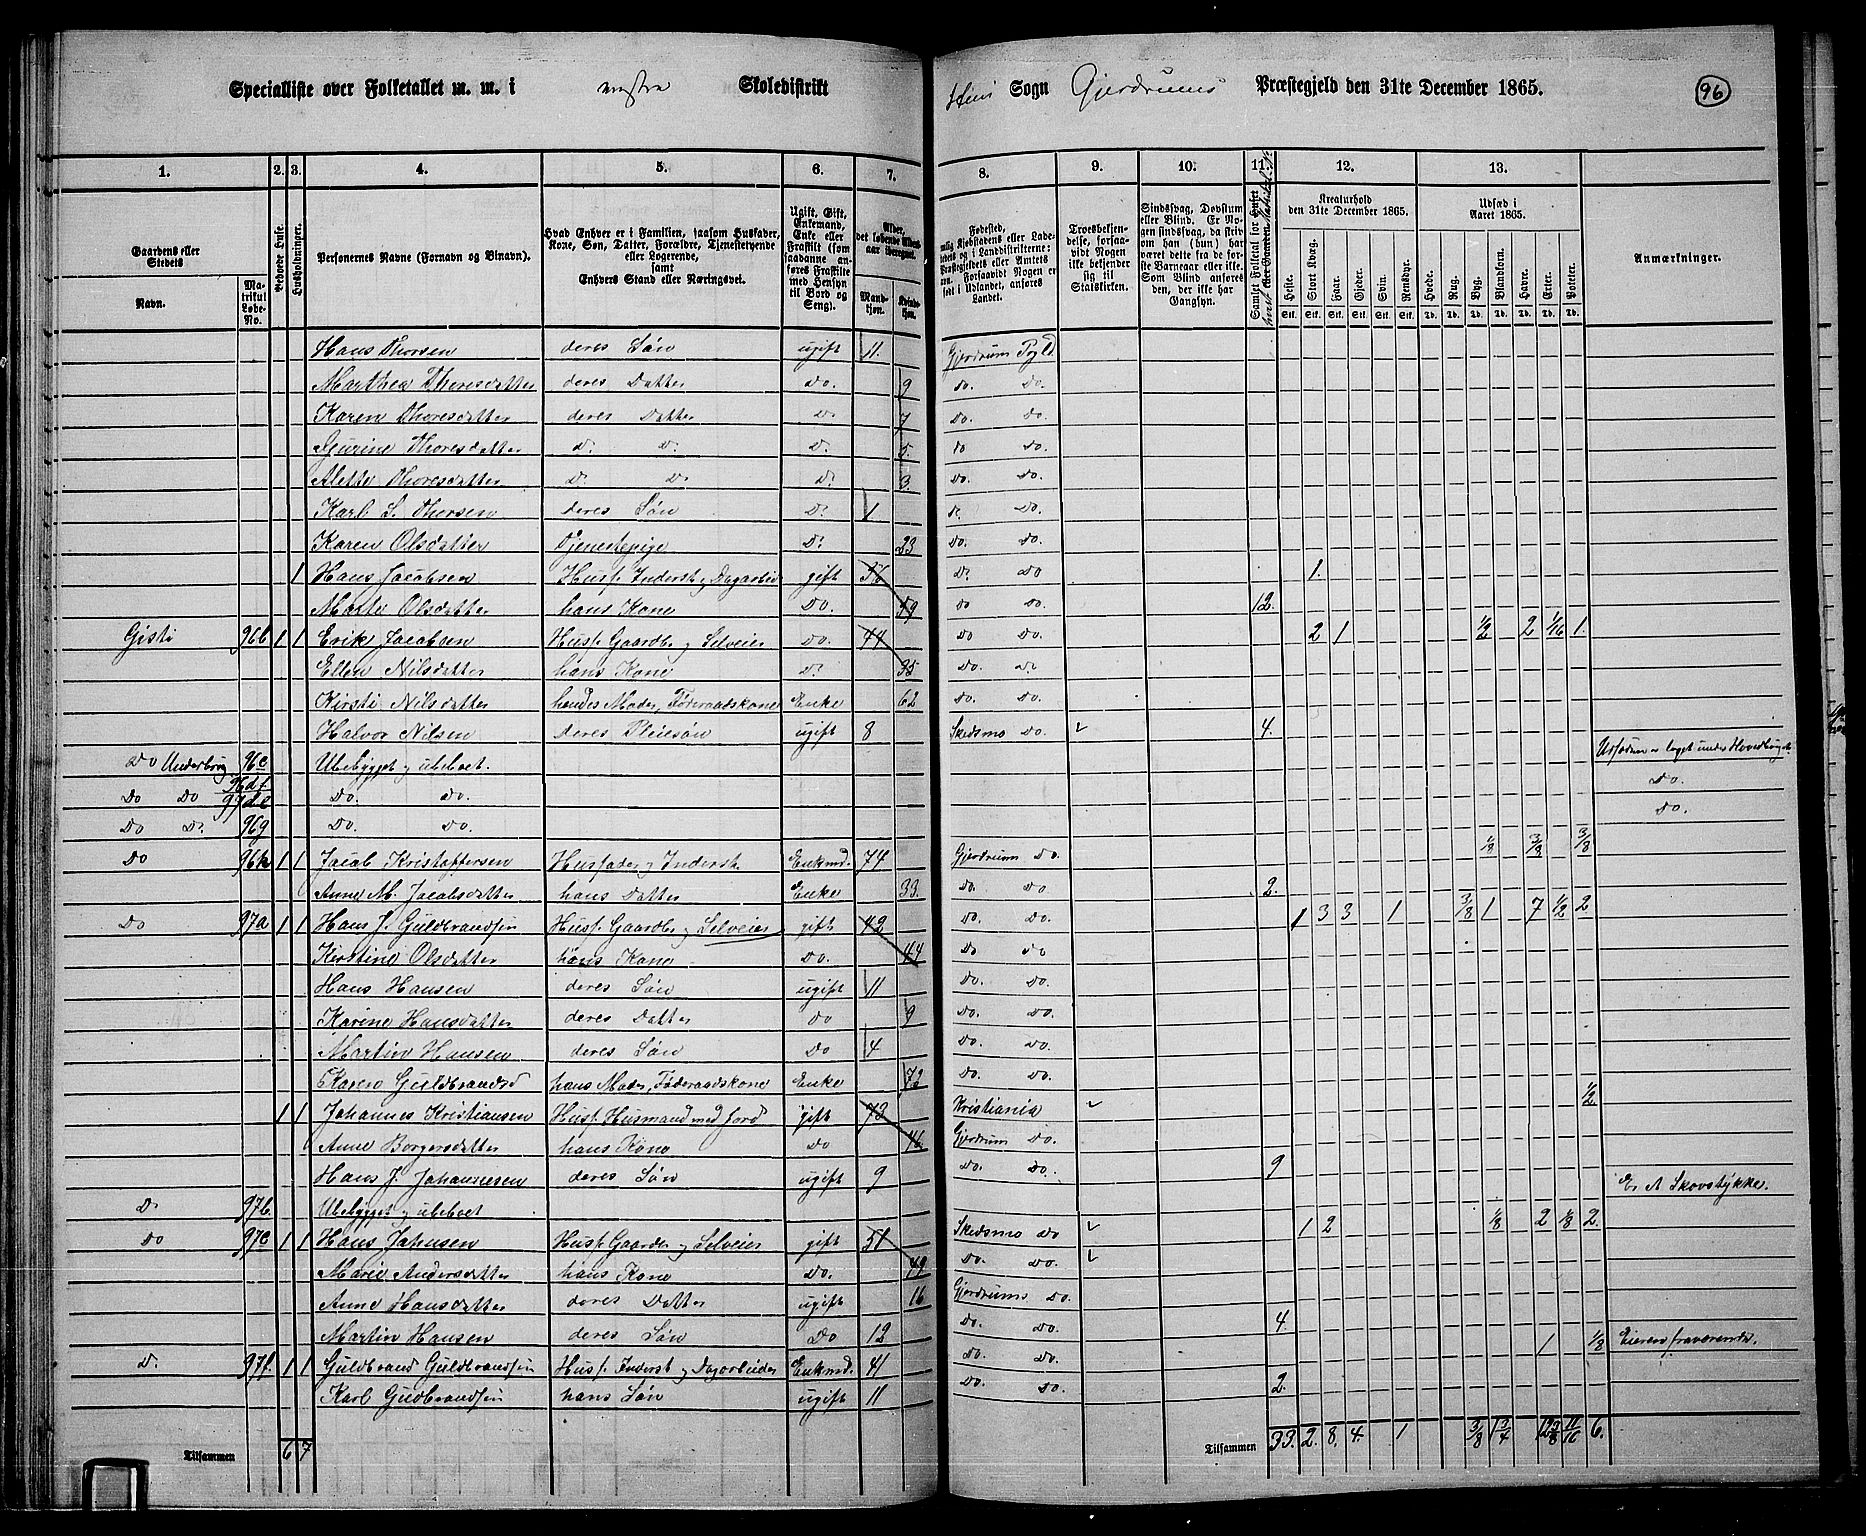 Specialliste over Folketallet m. m. i vestre Skoledistrikt
Heni Sogn Gjerdrums Præstegjeld den 31te December 1865.
96
1. 2. 3. 4. 5. 6. 7. 8. 9. 10. 11. 12. 13.
Gaardens eller Stedets
Navn.
Matrikul Løbe-No.
Beboede Huse.
Husholdninger.
Personernes Navne (Fornavn og Binavn).
Hvad Enhver er i Familien, saasom Husfader, Kone, Søn, Datter, Forældre, Tjenestetyende eller Logerende, samt Enhvers Stand eller Næringsvei.
Ugift, Gift, Enkemand, Enke eller Fraskilt (saadanne anføres Fraskilte med Hensyn til Bord og Seng).
Alder, det løbende Aldersaar iberegnet.
Mandkjøn.
Kvindekjøn.
Troesbekjendelse, forsaavidt Nogen ikke bekjender sig til Statskirken.
Sindssvag, Døvstum eller Blind. Er Nogen sindssvag, da skriv om han (hun) har været dette fra de første Barneaar eller ikke. Som Blind anføres den, der ikke har Gangsyn.
Kreaturhold den 31te December 1865.
Heste. Stort Kvæg. Faar. Gjeder. Svin. Rensdyr.
Udsæd i Aaret 1865.
Hvede. Rug. Byg. Blandkorn. Havre. Erter. Poteter.
Anmærkninger.
Hans Thorsen deres Søn ugift 11. Gjerdrum Pgld.
Marthea Thoresdatter deres Datter Do. 9 Do. Do.
Karen Thoresdatter deres Datter D. 7 Do. Do.
Gurine Thoresdatter D. D. D. 5 Do Do.
Alette Thoresdatter D. D. D. 3. Do. Do.
Karl S. Thorsen deres Søn D. 1 D. Do.
Karen Olsdatter Tjenestepige D. 23 Do. Do.
1 Hans Jacobsen Husf. Inderst og Dagarbei gift D. Do 1.
Marte Olsdatter hans Kone Do. 59 Do Do. 12.
Gisti 96b 1 1 Erik Jacobsen Husf. Gaardbr og Selveier Do. 44 Do Do. 2 1 1/2 2 1/16 1.
Ellen Nilsdatter hans Kone D. 35 Do. D.
Kirsti Nilsdatter hendes Moder, Føderaadskone Enke 62 Do. Do.
Halvor Nilsen deres Pleiesøn ugift 8 Skedsmo Do. 4.
Do Underbrug 96c Ubebygget og ubeboet. Udsæden er laget under Hovedbruget
Do Do 96d f 97d e Do. Do. Do.
Do D. 96g Do. Do. Do.
Do 96h 1 1 Jacob Kristoffersen Husfader og Inderst Enkmd. 74 Gjerdrum Do. 1/8 3/8 3/8
Anne M. Jacobsdatter hans Datter Enke 33. Do. Do. 2.
Do 97a 1 1 Hans J. Guldbrandsen Husf. Gaardbr og Selveier gift 42 Do Do. 1 3 3 1 3/8 1 7 1/2 2
Kirstine Olsdatter hans Kone Do. 44 Do Do
Hans Hansen deres Søn ugift 11 Do. Do.
Karine Hansdatter deres Datter Do 9 Do. Do.
Martin Hansen deres Søn Do 4 Do. Do.
Karen Guldbrandsd hans Moder, Føderaadskone Enke 72 Do. Do.
1 1 Johannes Kristiansen Husf. Husmand med Jord gift 73 Kristiania 1/2
Anne Borgersdatter hans Kone Do 46 Gjerdrum Do.
Hans J. Johannesen deres Søn ugift 9 Do. Do. 9
D. 97b. Ubebygget og ubeboet Er A Skovstykke.
Do 97c 1 1 Hans Jahnsen Husf. Gaardbr og Selveier gift 51 Skedsmo Do 1 2 1/8 2 1/8 2.
Marie Andersdatter hans Kone Do. 49 Do. Do.
Anne Hansdatter deres Datter ugift 16 Gjerdrums Do.
Martin Hansen deres Søn Do 12 Do. Do. 4.
D. 97f. 1 1 Guldbrand Guldbrandsen Husf. Inderst og Dagarbeider Enkmd. 41 Do. Do. 1 1/8 Eieren fraværende.
Karl Guldbrandsen hans Søn ugift 11 Do. Do. 2.
Tilsammen 6 7
Tilsammen 33. 2. 8. 4. 1 3/8 1 3/4 12 3/8 11/16 6.